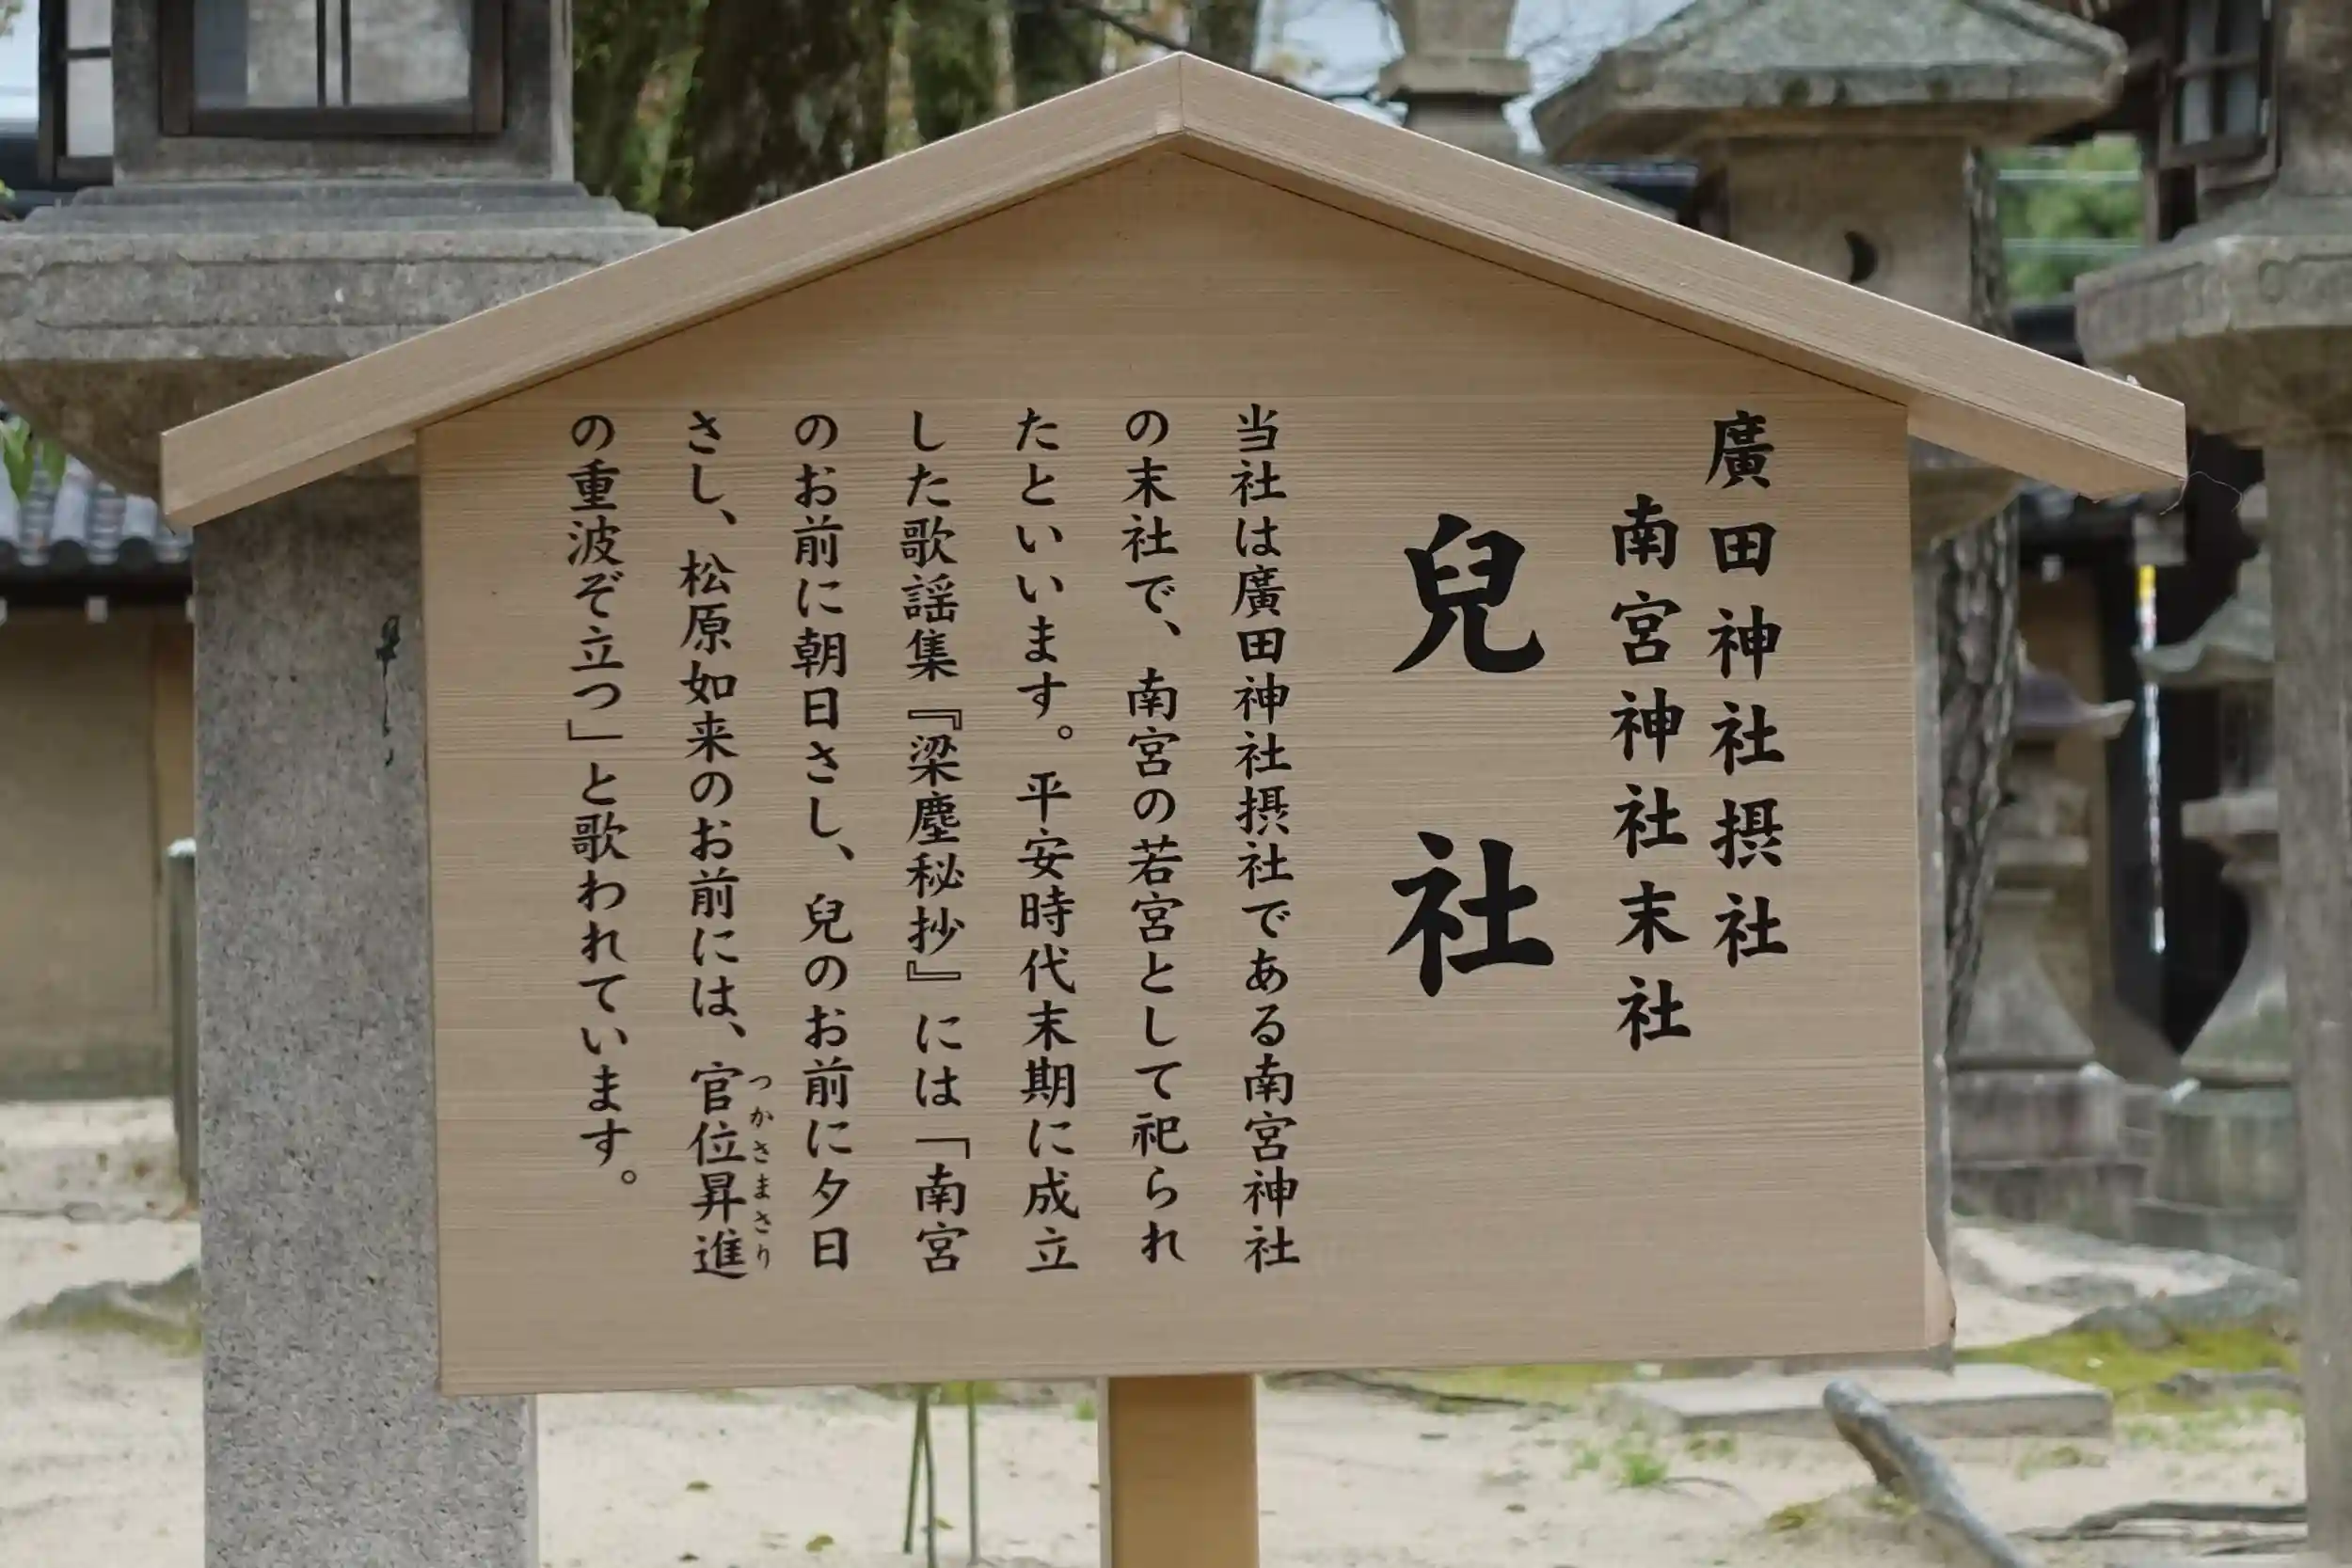 廣田神社摂社
南宮神社末社
兒社
当社は廣田神社摂社である南宮神社
の末社で、南宮の若宮として祀られ
たといいます。平安時代末期に成立
した歌謡集『梁塵秘抄』には「南宮
のお前に朝日さし、兒のお前に夕日
さし、松原如来のお前には、官位昇進
つかさまさり
の重波ぞ立つ」と歌われています。